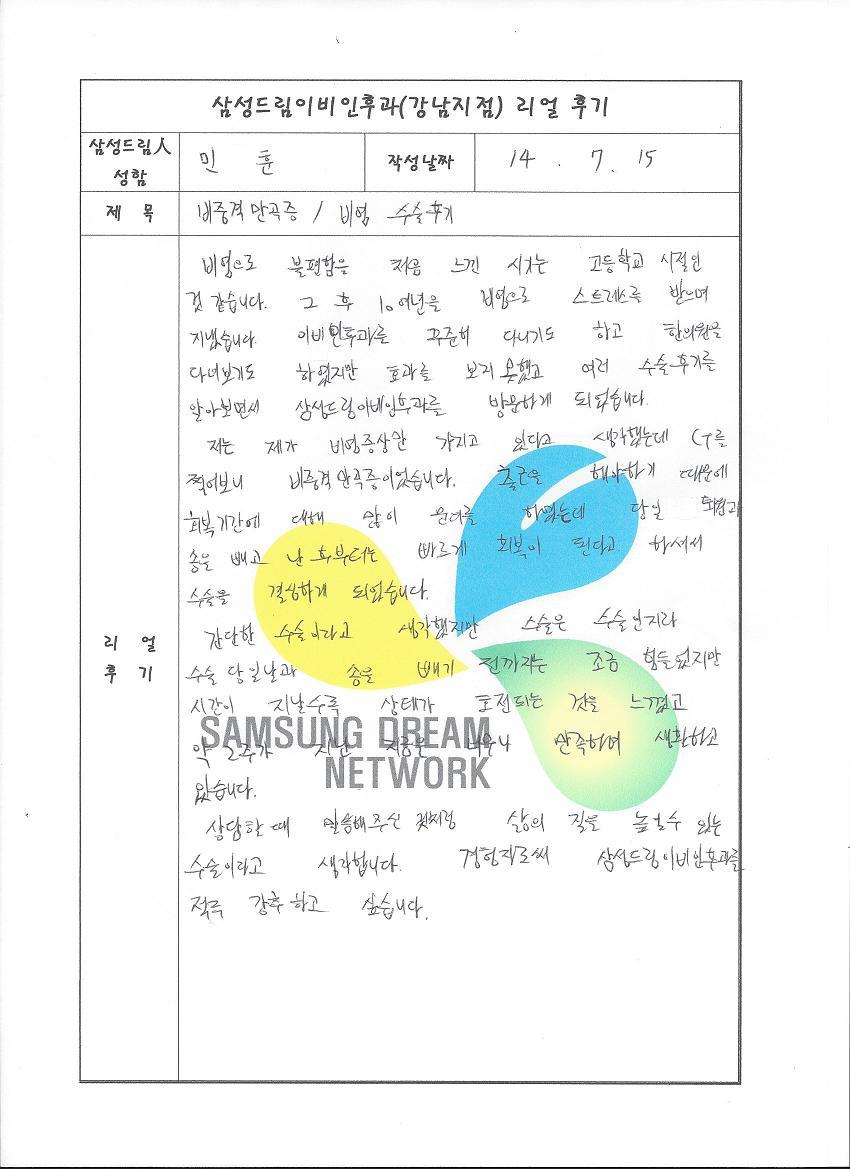 삼성드림이비인후과(강남지점) 리얼 후기
삼성드림人 성함
민 훈
작성날짜
14 . 7. 15
제 목
비중격만곡증 / 비염 수술후기
리 얼 후 기
비염으로 불편함을 처음 느낀 시기는 고등학교 시절인
것 같습니다. 그 후 10여년을 비염으로 스트레스를 받으며
지냈습니다. 이비인후과를 꾸준히 다니기도 하고 한의원을
다녀보기도 하였지만 효과를 보지 못했고 여러 수술후기를
알아보면서 삼성드림이비인후과를 방문하게 되었습니다.
저는 제가 비염증상만 가지고 있다고 생각했는데 CT를
찍어보니 비중격만곡증이었습니다. 출근을 해야하기 때문에
회복기간에 대해 많이 염려를 하였는데 당일 퇴원과
솜을 빼고 난 후부터는 빠르게 회복이 된다고 하셔서
수술을 결심하게 되었습니다.
간단한 수술이라고 생각했지만 수술은 수술인지라
수술 당일날과 솜을 빼기 전까지는 조금 힘들었지만
시간이 지날수록 상태가 호전되는 것을 느꼈고
약 2주가 지난 지금은 너무나 만족하며 생활하고
있습니다.
상담할때 말씀해주신 것처럼 삶의 질을 높일수 있는
수술이라고 생각합니다. 경험자로써 삼성드림이비인후과를
적극 강추하고 싶습니다.
SAMSUNG DREAM
NETWORK